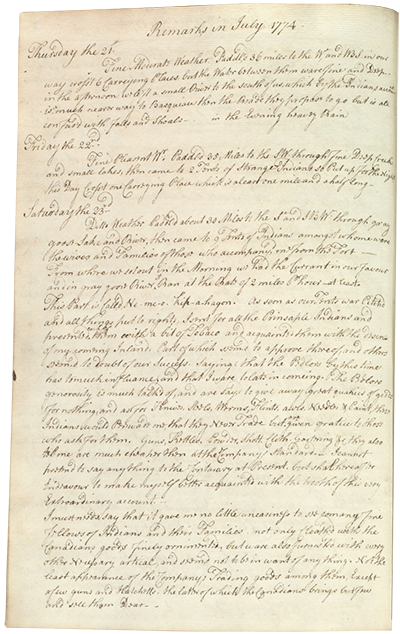 Remarks in July 1774
Thursday the 21st
Fine Pleasant Weather Paddled 36 miles to the W and WBS in our
way crost 6 Carrying Places but the Water between them ware fine and Deep
in the afternoon we left a small River to the south of us, which by the Indians acct
is much nearer way to Basquiau then the track they purpose to go but is all
confused with falls and Shoals — in the Evening heavy Rain
Friday the 22d
Fine Pleasant Wr Paddled 35 Miles to the SW through fine Deep
and small lakes, then came to 2 Tents of Strange Indians so Put up for the Night
this Day Crost one Carrying Place which is about one mile and a half long
Saturday the 23d
Ditto Weather Padled about 38 Miles to the S and SBW through
good Lake and River, then came to 9 Tents of Indians amongst whome ware
the wives and Families of those who accompany me from the Fort —
From where we set out in the Morning we had the Currant in our favour
and in many good River, Ran at the Rate of 2 miles Pr hour at least.
This Part is called
As soon as our Tents war Pitched
and all things put to rights, I sent for all the Prinsaple Indians and
presented them with a bit of Tobaco and acquainted them with the
of my coming Inland. Part of which seemed to approve thereof and others
seemed to doubt of our Success. Saying that the Pedlors by this time
has to much influance, and that I ware to late in comeing. The Pedlors
generosity is much talked of, and are said to give away great quanties of goods
for nothing, and as for Knives, Steels, Worms, Flints, awls, Needles & Paint, these
Indians would Perswade me that they Never Trade but given gratice to those
who ask for them. Guns, Kettles, Powder, Shott, Cloth, Gartring &c they also
tell me are much cheaper then at the Companys Standard. I cannot
pretend to say anything to the Contuary at Present. but shall hereafter
Endeavour to make myself better acquainted with the trooth of this very
Extraordinary account.
I must needs say that it gave me no little uneasiness to see so many fine
fellows of Indians and their Families not only Cloathed with the
Canadians goods finely ornimented, but ware also furnished with every
other Necessary artical, and seems not to be in want of any thing. Not the
least appearance of the Companys Trading goods among them, Except
a few guns and Hatchetts, the latter of which the Canadians brings but few
and sell them Dear —